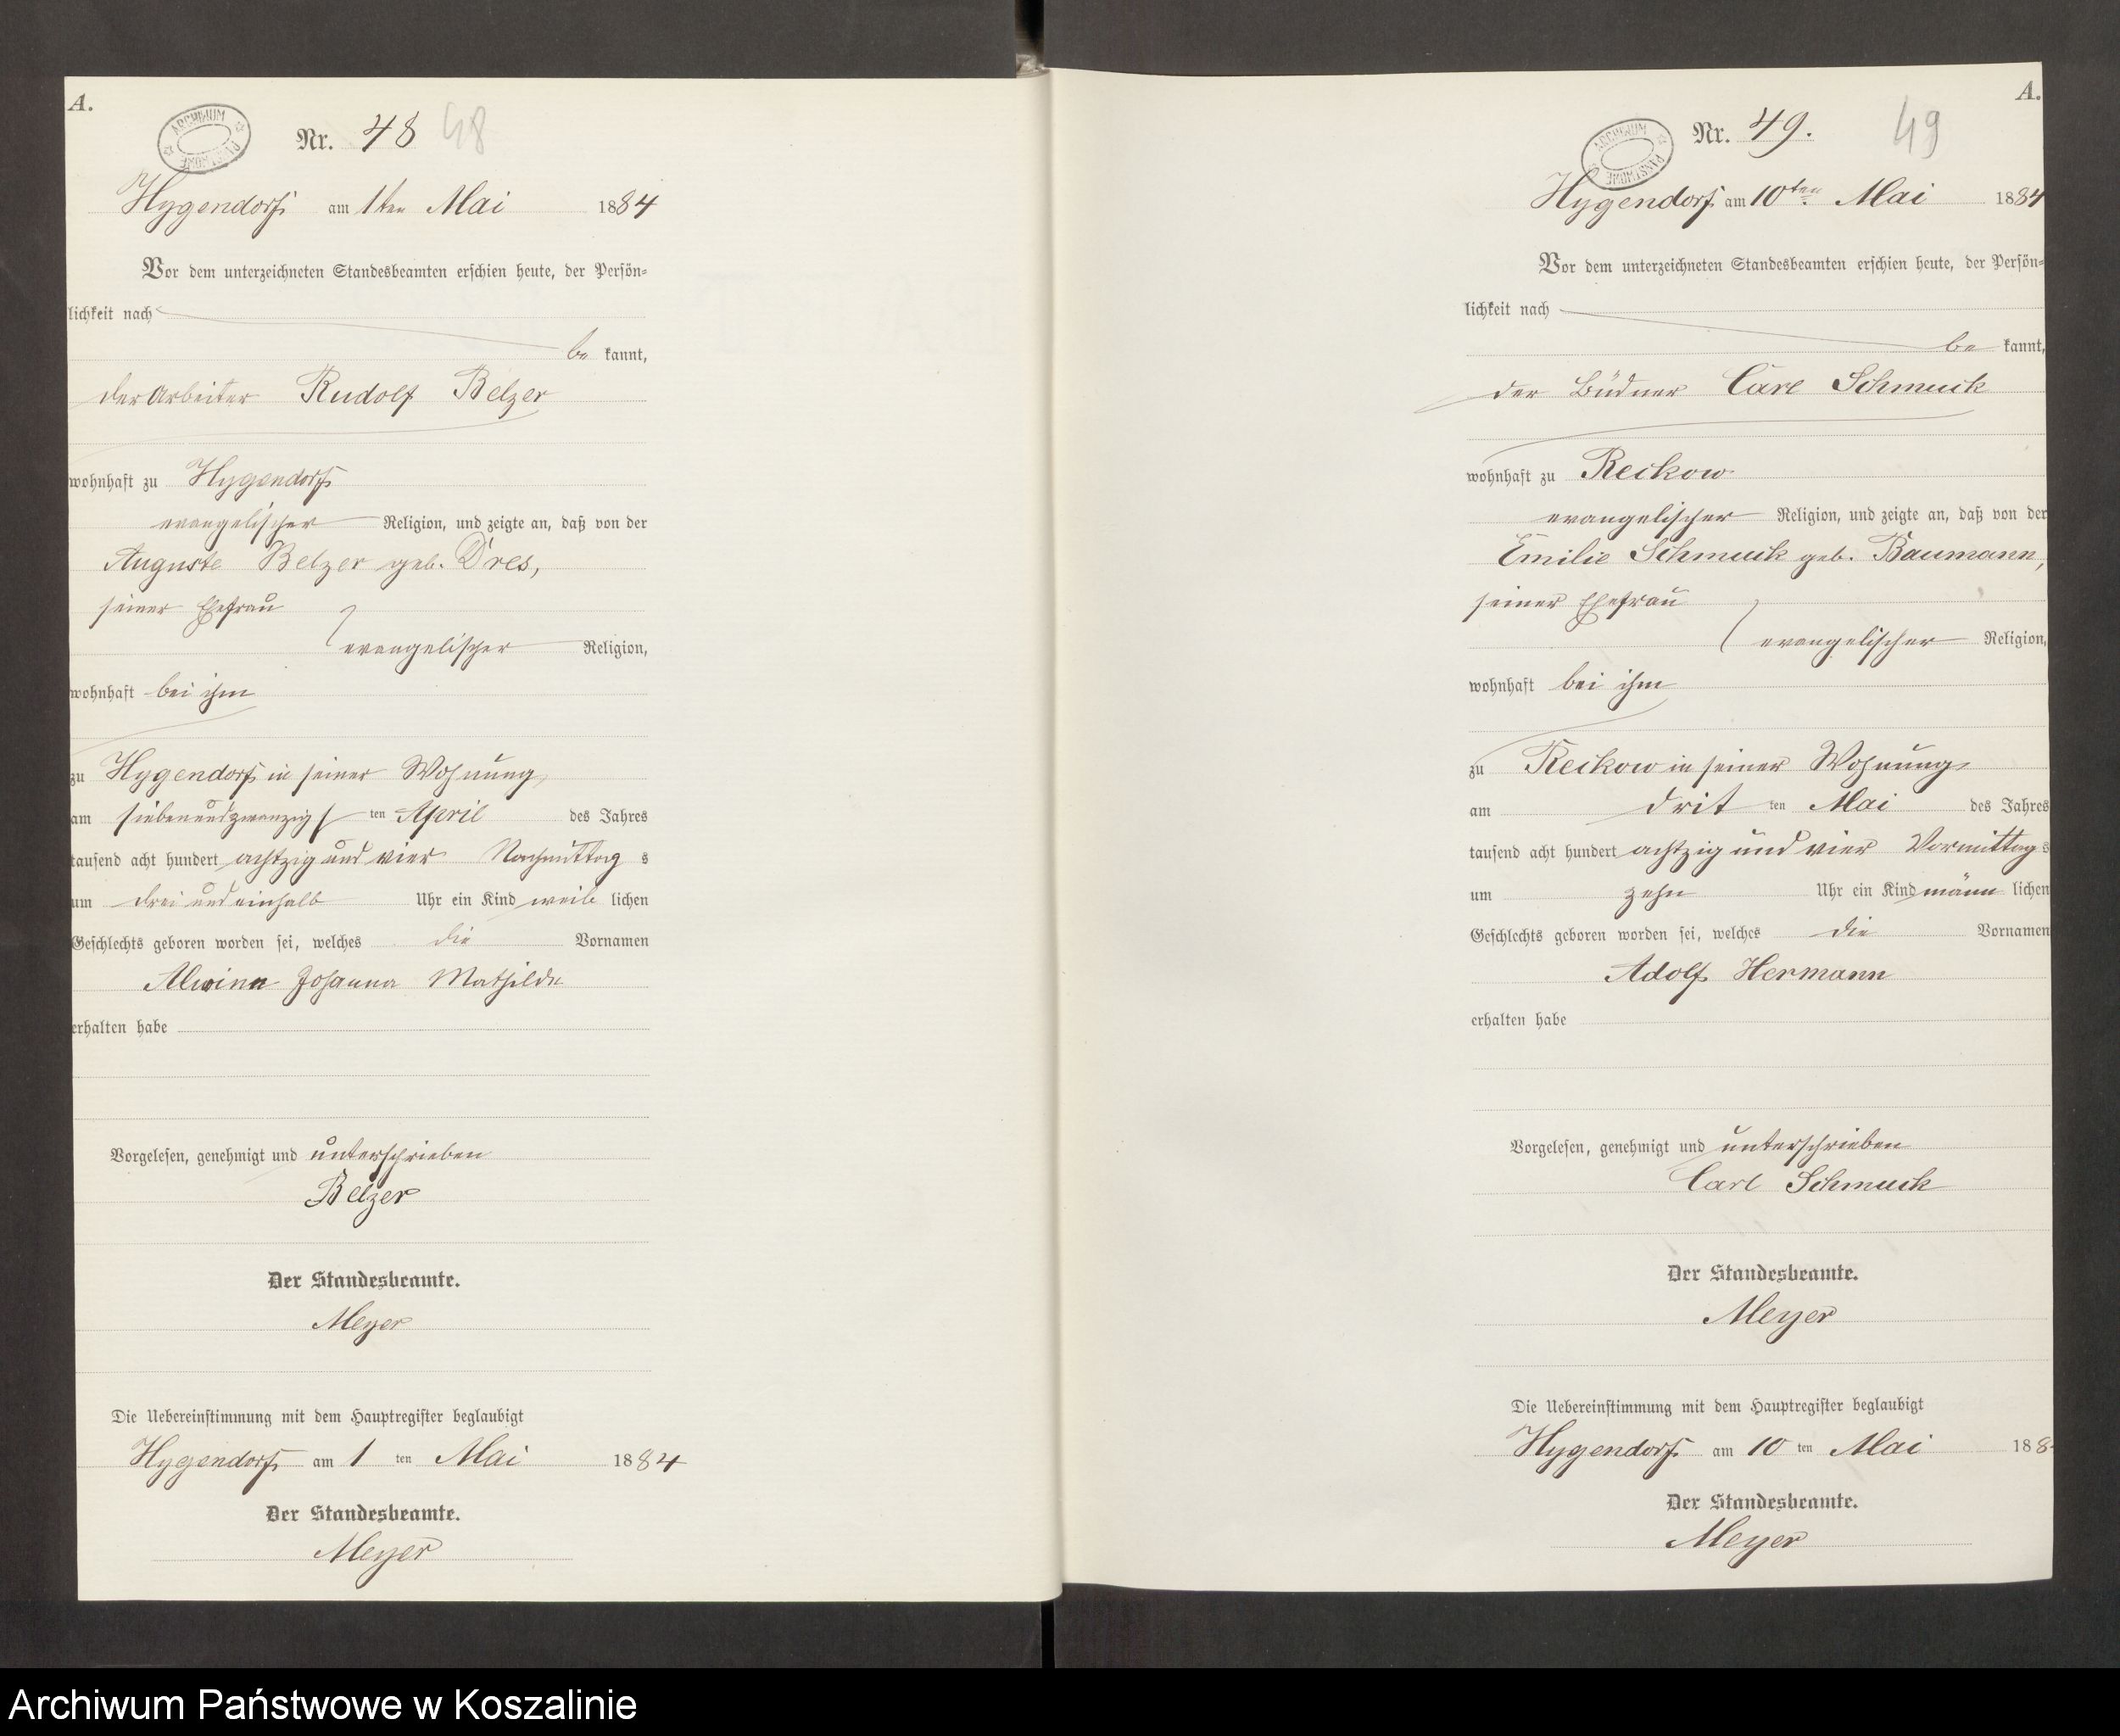 A.
ARCHIWUM PAŃSTWOWE
Nr. 48 48
Hygendorf am 1ten Mai 1884
Vor dem unterzeichneten Standesbeamten erschien heute, der Persön-
lichkeit nach
be kannt,
der Arbeiter Rudolf Belzer
wohnhaft zu Hygendorf
evangelischer Religion, und zeigte an, daß von der
Auguste Belzer geb. Dres,
seiner Ehefrau
evangelischer Religion,
wohnhaft bei ihm
zu Hygendorf in seiner Wohnung
am siebenundzwanzig ten April des Jahres
tausend acht hundert achtzig und vier Nachmittag s
um drei und einhalb Uhr ein Kind weib lichen
Geschlechts geboren worden sei, welches die Vornamen
Alwine Johanna Mathilde
erhalten habe
Vorgelesen, genehmigt und unterschrieben
Belzer
Der Standesbeamte.
Meyer
Die Uebereinstimmung mit dem Hauptregister beglaubigt
Hygendorf am 1 ten Mai 1884
Der Standesbeamte.
Meyer
A.
ARCHIWUM PAŃSTWOWE
Nr. 49. 49
Hygendorf am 10ten Mai 1884
Vor dem unterzeichneten Standesbeamten erschien heute, der Persön-
lichkeit nach
be kannt,
der Büdner Carl Schmuck
wohnhaft zu Reckow
evangelischer Religion, und zeigte an, daß von der
Emilie Schmuck geb. Baumann,
seiner Ehefrau
evangelischer Religion,
wohnhaft bei ihm
zu Reckow in seiner Wohnung
am drit ten Mai des Jahres
tausend acht hundert achtzig und vier Vormittag s
um zehn Uhr ein Kind männ lichen
Geschlechts geboren worden sei, welches die Vornamen
Adolf Hermann
erhalten habe
Vorgelesen, genehmigt und unterschrieben
Carl Schmuck
Der Standesbeamte.
Meyer
Die Uebereinstimmung mit dem Hauptregister beglaubigt
Hygendorf am 10 ten Mai 188
Der Standesbeamte.
Meyer
Archiwum Państwowe w Koszalinie